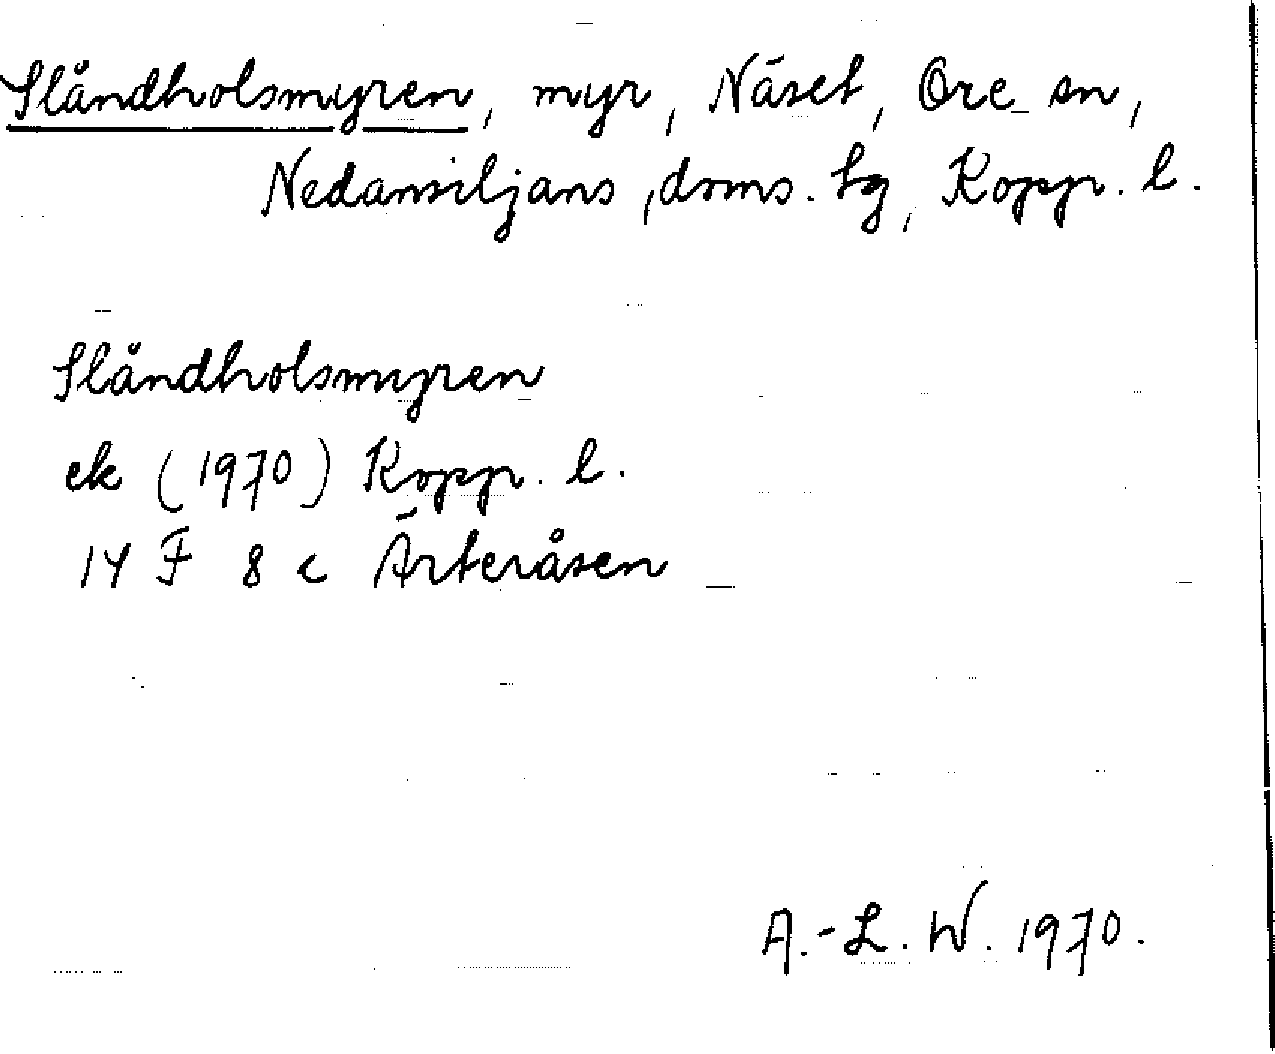 Slåndholsmyren, myr, Näset, Ore sn,
Nedansiljans, doms. tg, Kopp. l.
Slåndholsmyren
ek (1970) Kopp. l.
14 F 8 c Ärteråsen
A.-L. W. 1970.